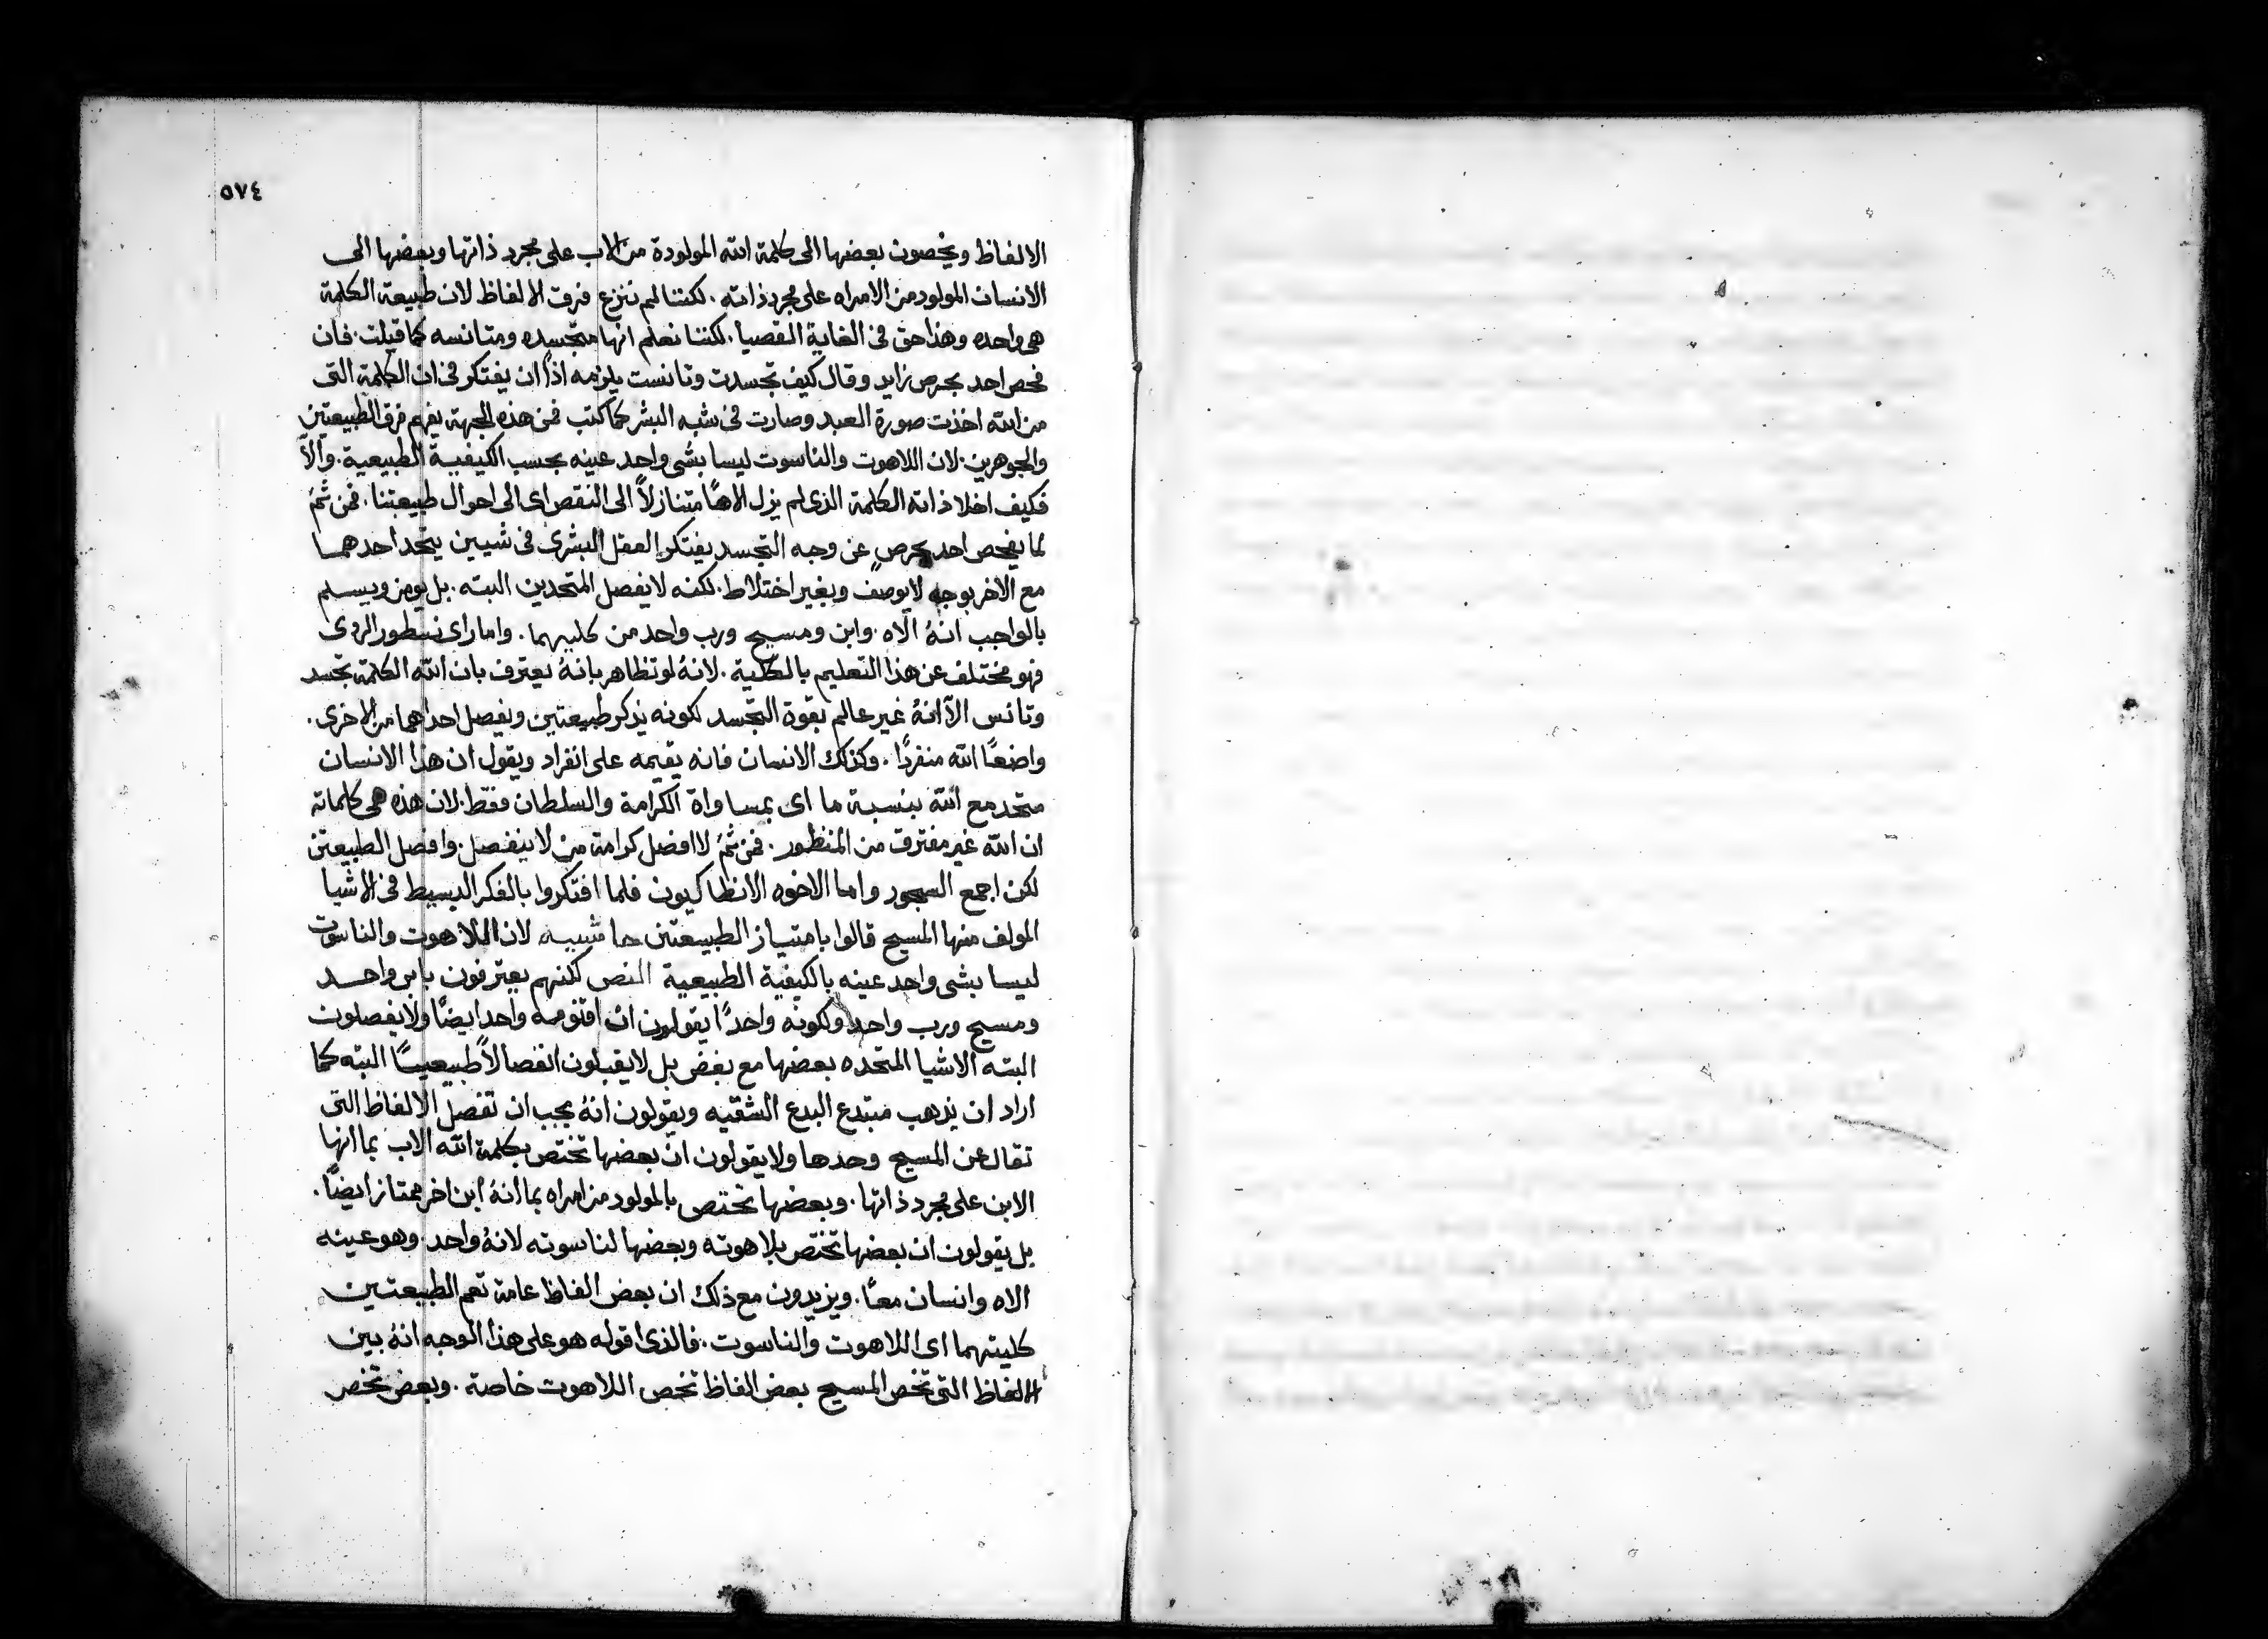 ٥٧٤
الالفاظ ويخصون بعضها الى كلمة الله المولودة من الاب على مجرد ذاتها وبعضها الى
الانسان المولود من الامراه على مجرد ذاته . لكننا لم ننزع فرق الالفاظ لان طبيعة الكلمة
هى واحده وهذا حق فى الغاية القصيا . لكننا نعلم انها متجسده ومتانسه كما قيلت . فان
فحص احد بحرص زايد وقال كيف تجسدت وتانست يلزمه اذًا ان يفتكر فى ان الكلمة التى
من الله اخذت صورة العبد وصارت فى شبه البشر كما كتب فمن هذه الجهة يفهم فرق الطبيعتين
والجوهرين . لان اللاهوت والناسوت ليسا بشى واحد عينه بحسب الكيفية الطبيعية . والّا
فكيف اخلا ذاته الكلمة الذى لم يزل الاهًا متنازلًا الى النقص اى الى احوال طبيعتنا . فمن ثَمَّ
لما يفحص احد بحرصٍ عن وجه التجسد يفتكر العقل البشرى فى شيين يتحد احدهما
مع الاخر بوجه لايوصف وبغير اختلاط . لكنه لا يفصل المتحدين البته . بل يومن ويسلم
بالواجب انهُ الاه . وابن ومسيح ورب واحد من كليهما . واما راى نسطور الردى
فهو مختلف عن هذا التعليم بالكلية . لانهُ لو تظاهر بانهُ يعترف بان الله الكلمة تجسد
وتانس الّا انهُ غير عالم بقوة التجسد لكونه يذكر طبيعتين ويفصل احداهما من الاخرى .
واضعًا الله منفردًا . وكذلك الانسان فانه يقيمه على انفراد ويقول ان هذا الانسان
متحد مع الله بنسبة ما اى بمساواة الكرامة والسلطان فقط . لان هذه هى كلماته
ان الله غير مفترق من المنظور . فمن ثَمَّ لا افصل كرامة من لا ينفصل . وافصل الطبيعتين
لكن اجمع السجود واما الاخوه الانطاكيون فلما افتكروا بالفكر البسيط فى الاشيا
المولف منها المسيح قالوا بامتياز الطبيعتين حاشيه لان اللاهوت والناسوت
ليسا بشى واحد عينه بالكيفية الطبيعية النص لكنهم يعترفون بابن واحد
ومسيح ورب واحد ولكونه واحدًا يقولون ان اقنومه واحد ايضًا ولا يفصلون
البته الاشيا المتحده بعضها مع بعض بل لا يقبلون انفصالًا طبيعيًا البته كما
اراد ان يذهب مبتدع البدع الشقيه ويقولون انهُ يجب ان تفصل الالفاظ التى
تقال عن المسيح وحدها ولا يقولون ان بعضها تختص بكلمة الله الاب بما انها
الابن على مجرد ذاتها . وبعضها تختص بالمولود من امراه بما انهُ ابن اخر ممتاز ايضًا .
بل يقولون ان بعضها تختص بلاهوته وبعضها لناسوته لانهُ واحد . وهو عينه
الاه وانسان معًا . ويزيدون مع ذلك ان بعض الفاظ عامة تعم الطبيعتين
كليتهما اى اللاهوت والناسوت . فالذى اقوله هو على هذا الوجه انهُ بين
الالفاظ التى تخص المسيح بعض الفاظ تخص اللاهوت خاصة . وبعض تخص